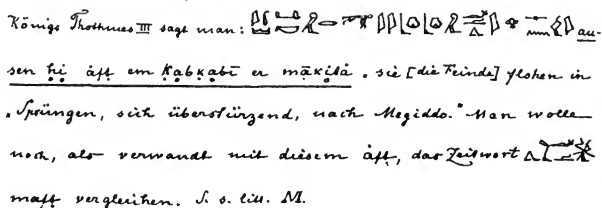 Königs Thothmes III sagt man: au-
sen hi äft em Kabkabi er mäkitá . sie [die Feinde] flohen in
„Sprüngen, sich überstürzend, nach Megiddo." Man wolle
noch, als verwandt mit diesem äft, das Zeitwort
maft vergleichen. S. s. litt. M.